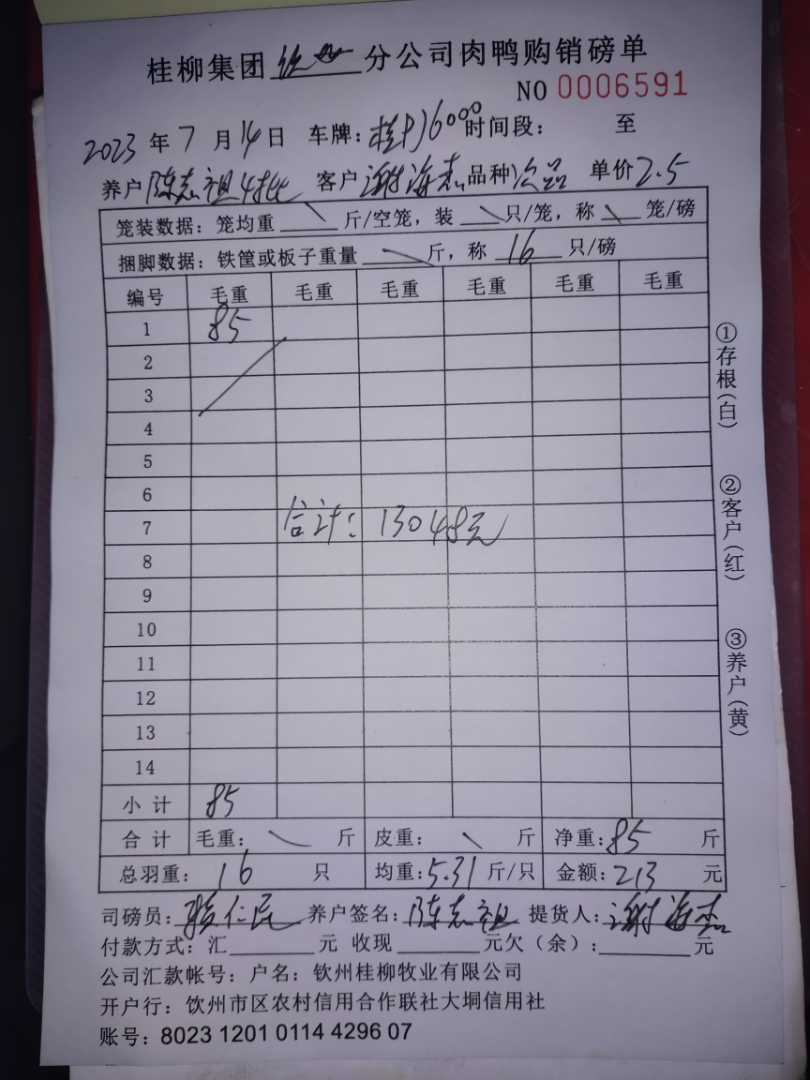 桂柳集团钦州分公司肉鸭购销磅单
NO 0006591
2023 年 7 月 14 日 车牌: 桂J16000 时间段: 至
养户 陈志祖4批 客户 谢海杰 品种 次品 单价 2.5
笼装数据: 笼均重 \ 斤/空笼, 装 \ 只/笼, 称 \ 笼/磅
捆脚数据: 铁筐或板子重量 \ 斤, 称 16 只/磅
编号 毛重 毛重 毛重 毛重 毛重 毛重
1 85
2
3
4
5
6
7 合计: 13048元
8
9
10
11
12
13
14
小 计 85
合 计 毛重: \ 斤 皮重: \ 斤 净重: 85 斤
总羽重: 16 只 均重: 5.31 斤/只 金额: 213 元
司磅员: 仁民 养户签名: 陈志祖 提货人: 谢海杰
付款方式: 汇 元 收现 元欠(余): 元
公司汇款帐号: 户名: 钦州桂柳牧业有限公司
开户行: 钦州市区农村信用合作联社大垌信用社
账号: 8023 1201 0114 4296 07
①存根(白)
②客户(红)
③养户(黄)